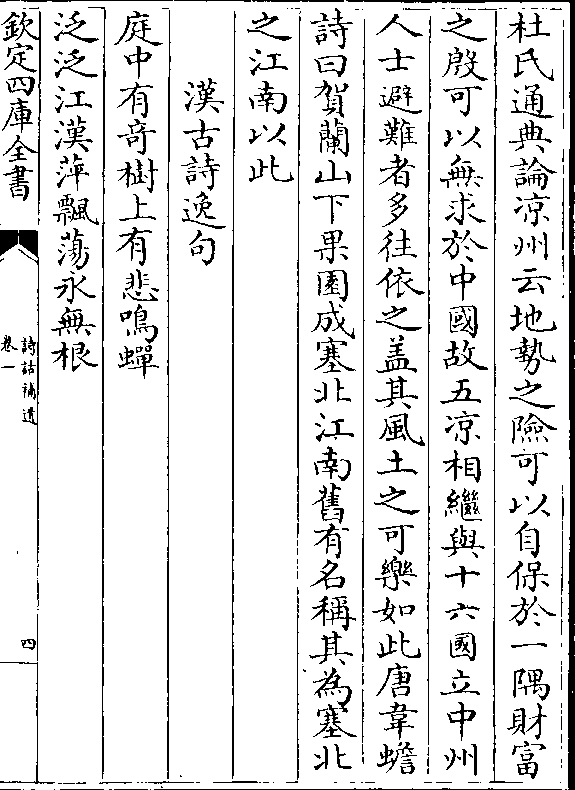 杜氏通典論凉州云地勢之險可以自保於一隅財富
之殷可以無求於中國故五凉相繼與十六國立中州
人士避難者多往依之盖其風土之可樂如此唐韋蟾
詩曰賀蘭山下果園成塞北江南舊有名稱其為塞北
之江南以此
漢古詩逸句
庭中有奇樹上有悲鳴蟬
泛泛江漢萍飄蕩永無根
欽定四庫全書
詩話補遺
卷一
四